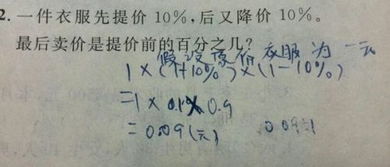 2. 一件衣服先提价 10%,后又降价 10%。
最后卖价是提价前的百分之几?
假设原价衣服为一元
1×(1+10%)×(1-10%)
=1×0.1×0.9
=0.09(元)
0.09÷1